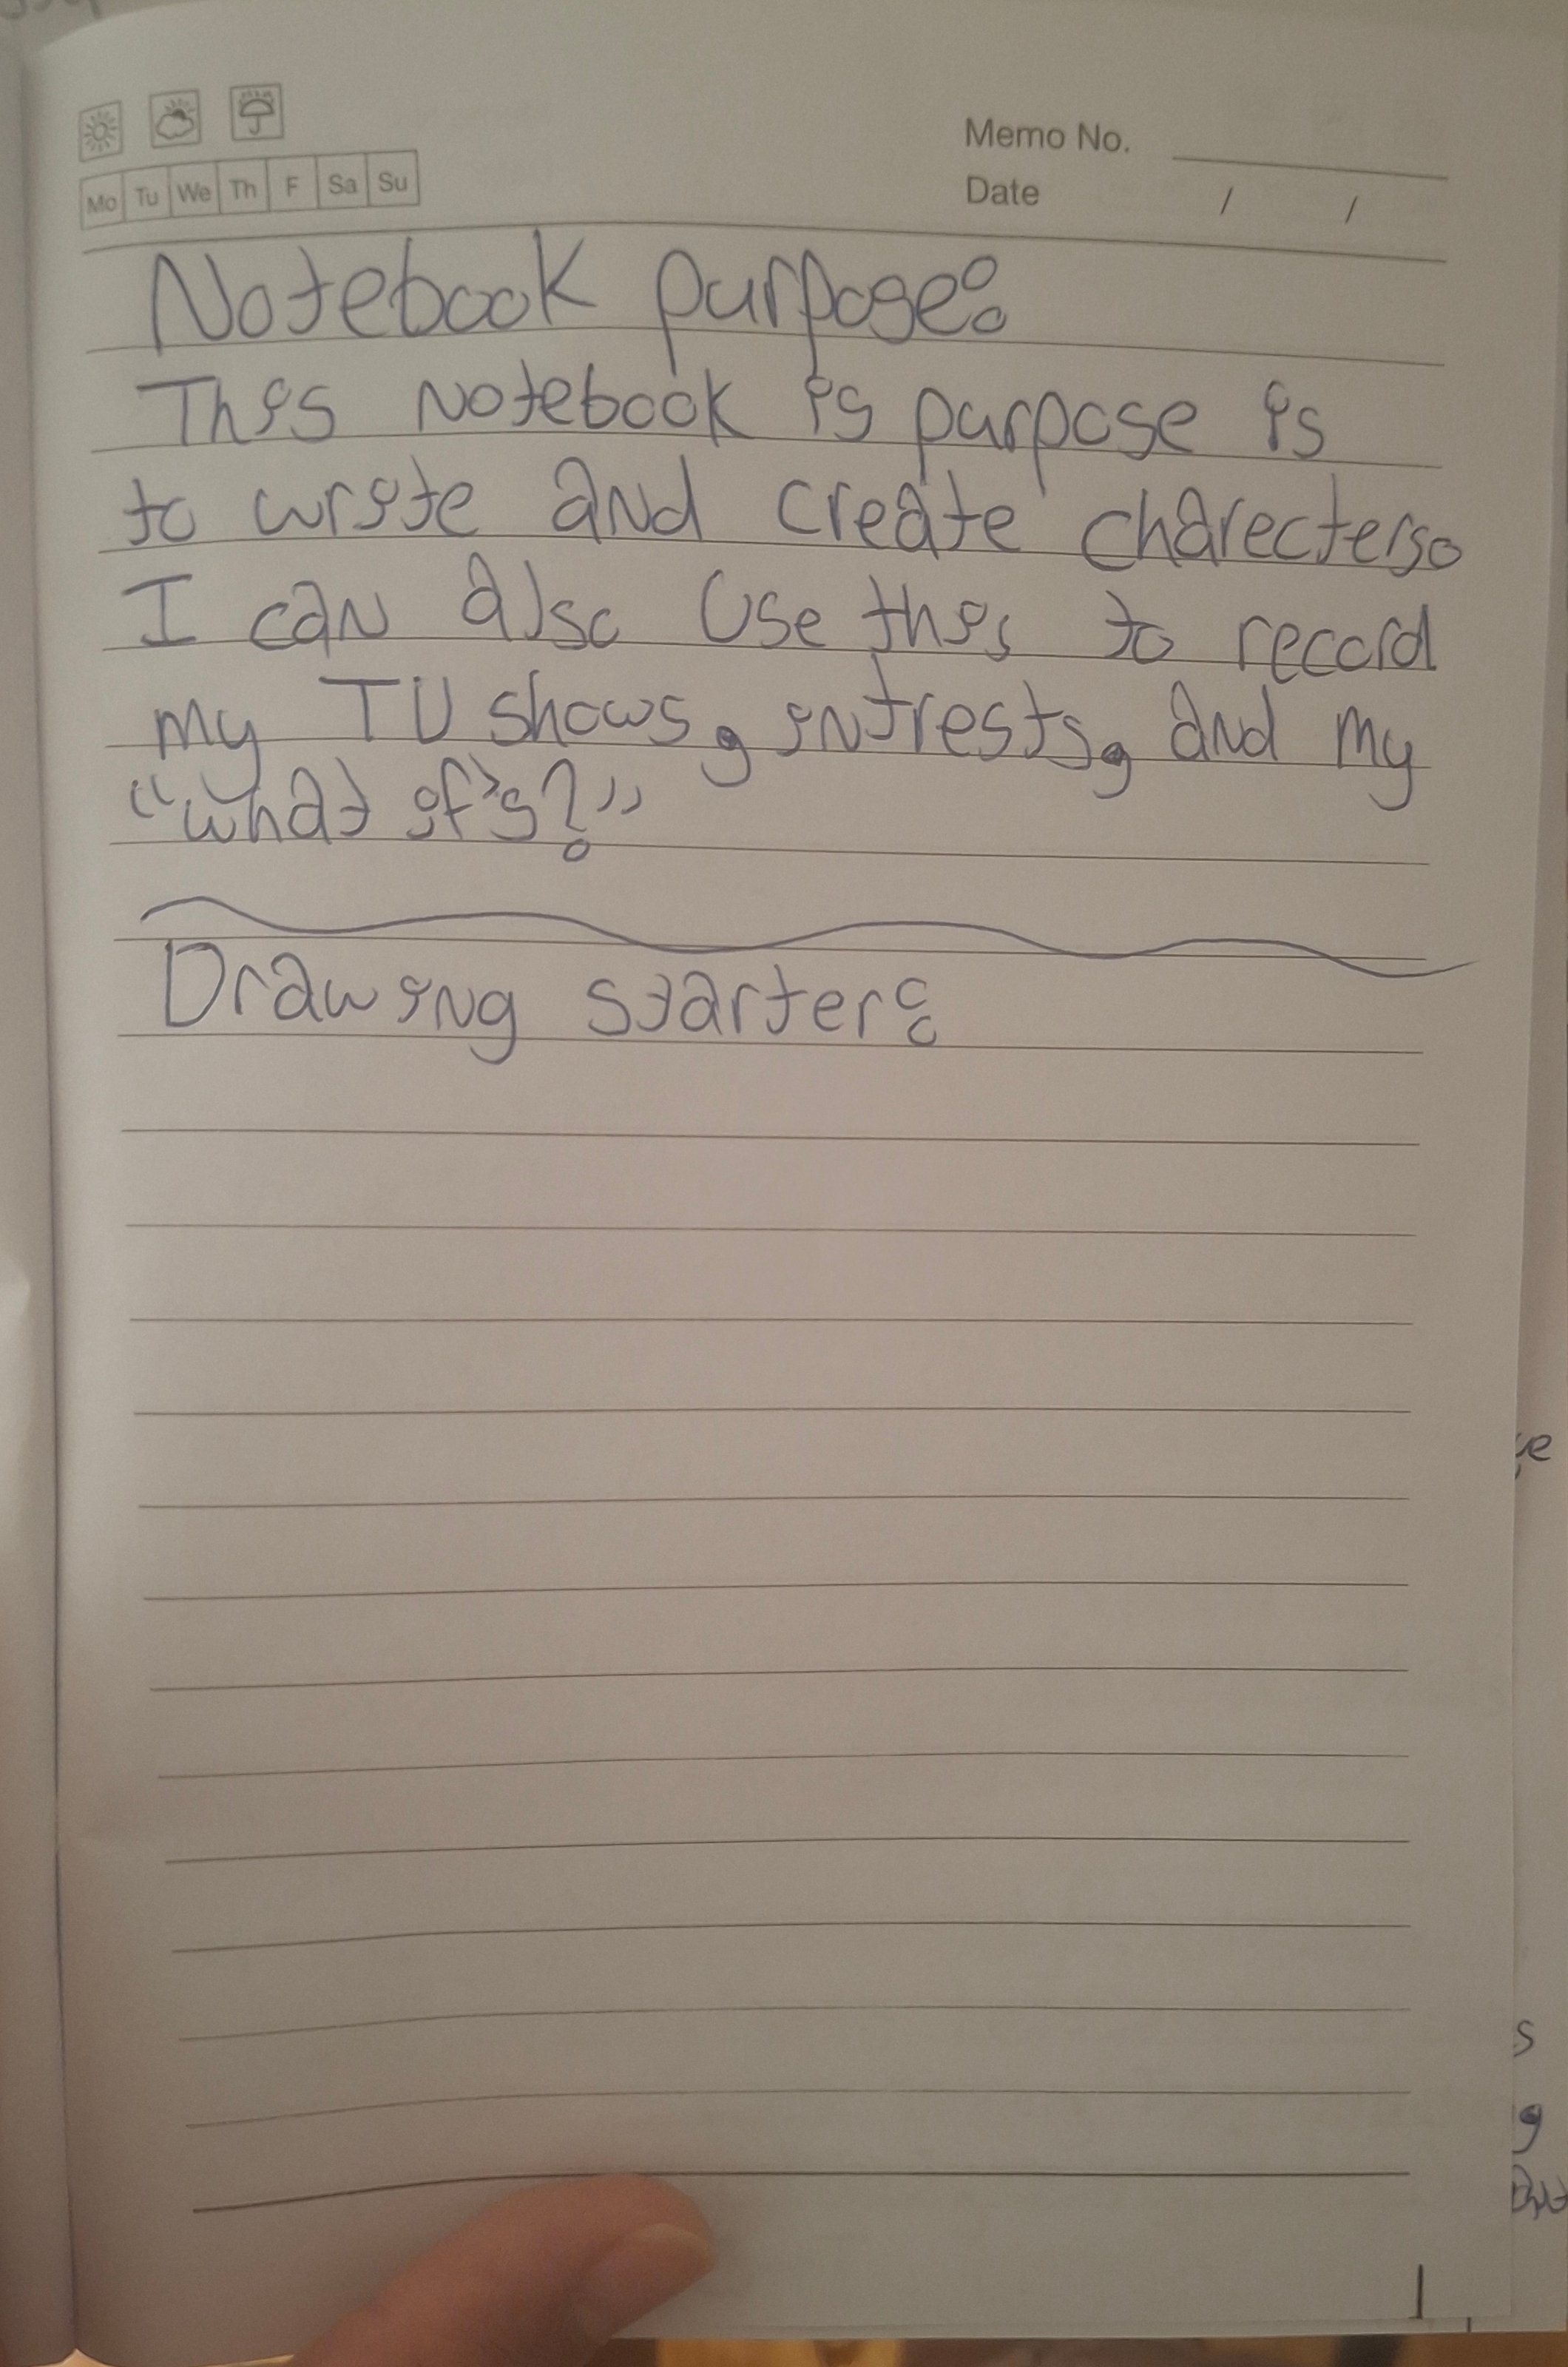 Memo No.
Mo Tu We Th F Sa Su
Date / /
Notebook purpose:
This Notebook is purpose is
to write and create charecters.
I can also Use this to record
my TV shows, intrests, and my
"what if's?"
Drawing starter:
1